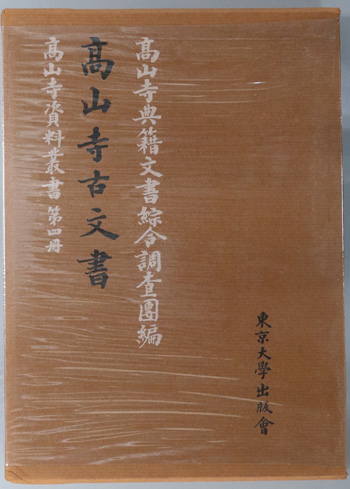 高山寺典籍文書綜合調査團編
髙山寺古文書
高山寺資料叢書第四册
東京大學出版會